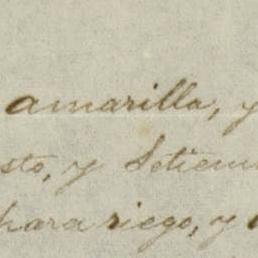 amarilla, y
sto, y Setiem
para riego, y